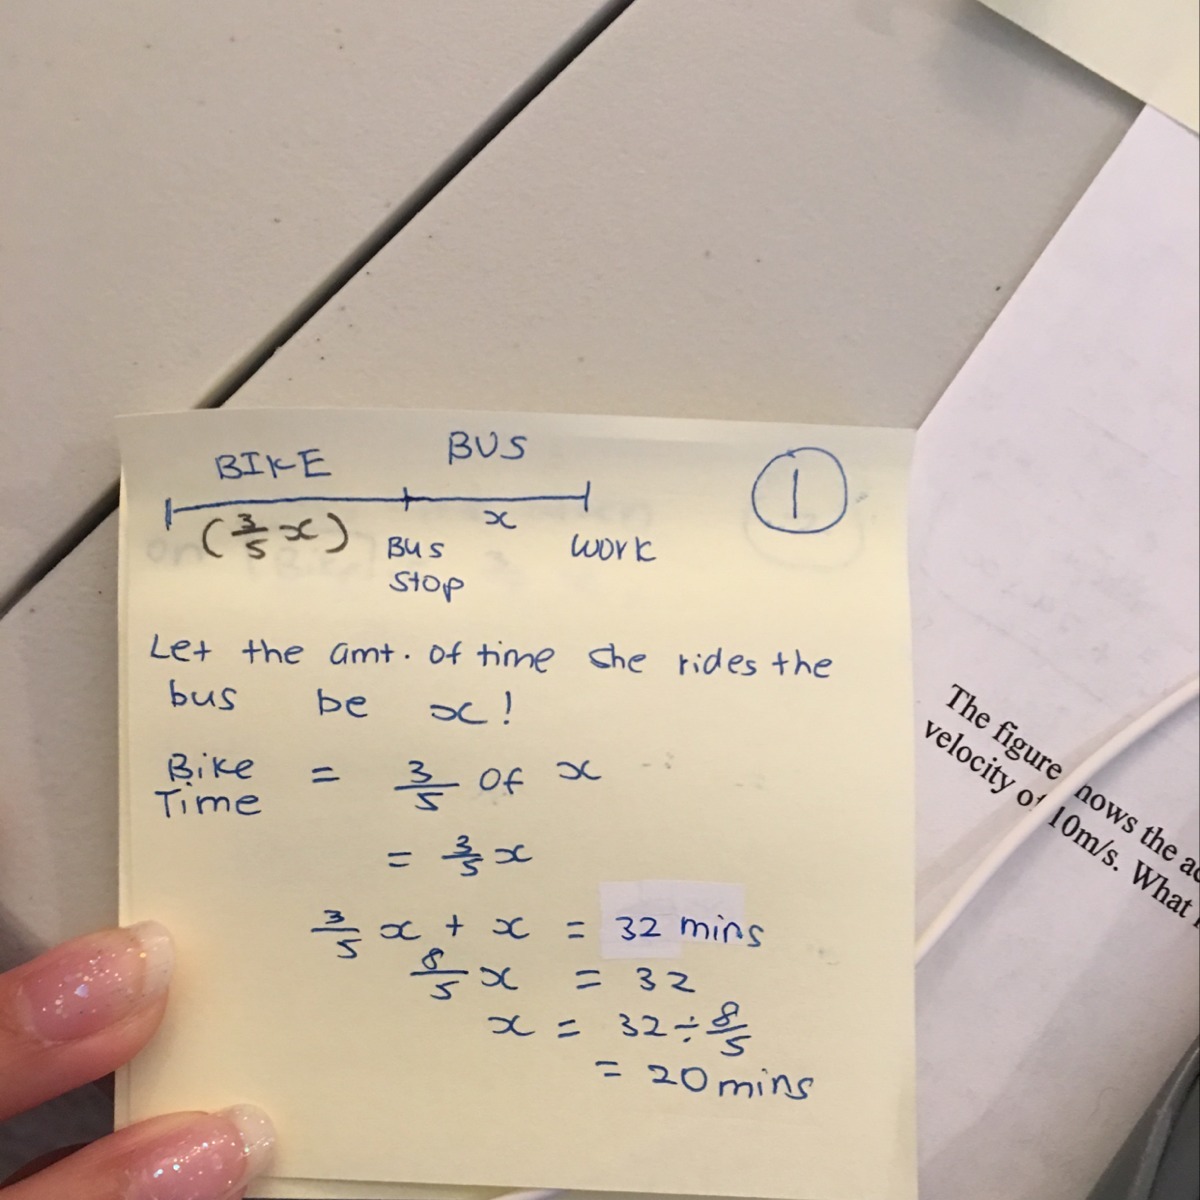 BIKE BUS
①
(3/5 x) x
Bus Stop
work
Let the amt. of time she rides the
bus be x!
Bike Time = 3/5 of x
= 3/5 x
3/5 x + x = 32 mins
8/5 x = 32
x = 32 ÷ 8/5
= 20 mins
The figure hows the
velocity of 10m/s. What